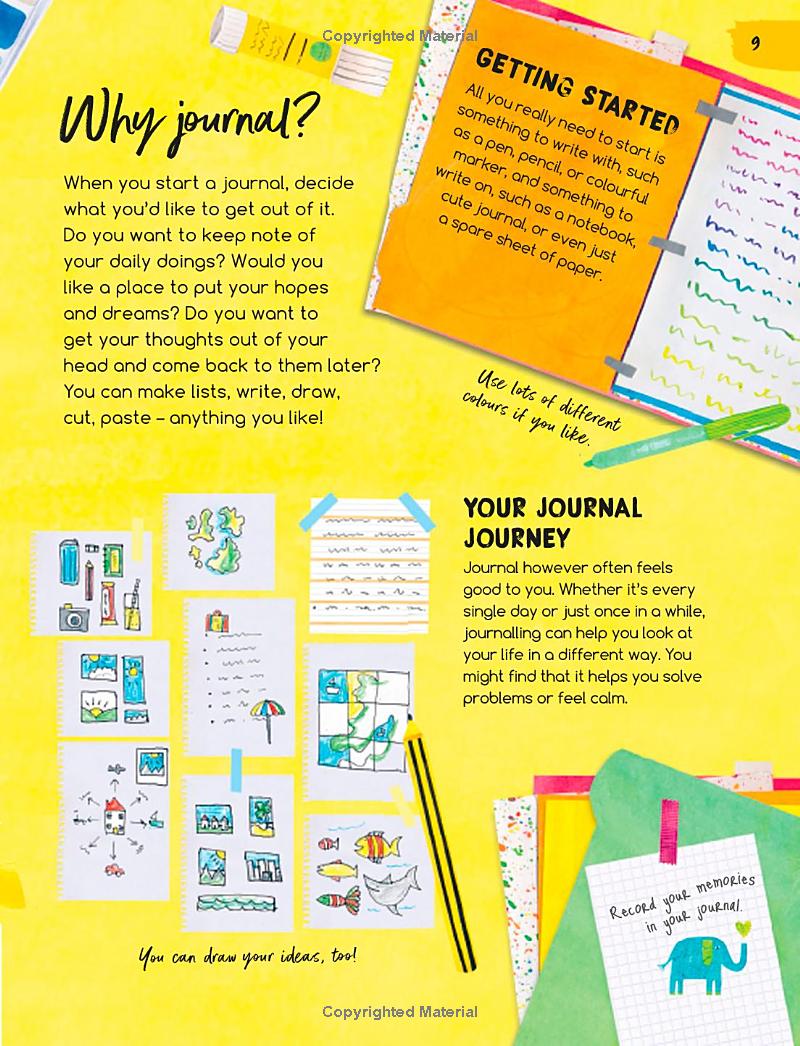 Copyrighted Material
9
Why journal?
When you start a journal, decide
what you'd like to get out of it.
Do you want to keep note of
your daily doings? Would you
like a place to put your hopes
and dreams? Do you want to
get your thoughts out of your
head and come back to them later?
You can make lists, write, draw,
cut, paste – anything you like!
GETTING STARTED
All you really need to start is
something to write with, such
as a pen, pencil, or colourful
marker, and something to
write on, such as a notebook,
cute journal, or even just
a spare sheet of paper.
Use lots of different
colours if you like.
YOUR JOURNAL
JOURNEY
Journal however often feels
good to you. Whether it's every
single day or just once in a while,
journalling can help you look at
your life in a different way. You
might find that it helps you solve
problems or feel calm.
You can draw your ideas, too!
Record your memories
in your journal.
Copyrighted Material